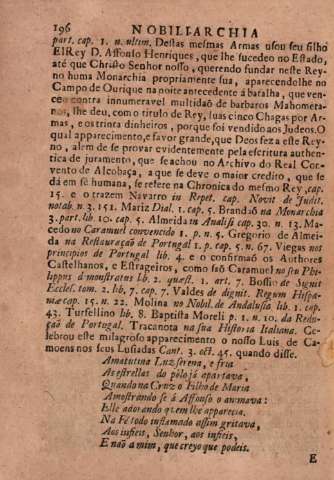 196 NOBILIARCHIA
part. cap. 1. n. ultim. Destas mesmas Armas usou seu filho
ElRey D. Affonso Henriques, que lhe sucedeo no Estado,
até que Christo Senhor nosso, querendo fundar neste Rey-
no huma Monarchia propriamente sua, apparecendolhe no
Campo de Ourique na noite antecedente à batalha, que ven-
ceo contra innumeravel multidaõ de barbaros Mahometa-
nos, lhe deu, com o titulo de Rey, suas cinco Chagas por Ar-
mas, e os trinta dinheiros, porque foi vendido aos Judeos. O
qual apparecimento, e favor grande, que Deos fez a este Rey-
no, alem de se provar evidentemente pela escritura authen-
tica de juramento, que se achou no Archivo do Real Con-
vento de Alcobaça, a que se deve o maior credito, que se
dá em fé humana, se refere na Chronica do mesmo Rey, cap.
15. e o trazem Navarro in Repet. cap. Novit de Judit.
notab. n. 3. 151. Mariz Dial. 1. cap. 5. Brandaõ na Monarchia
3. part. lib. 10. cap. 5. Almeida in Analisi cap. 30. n. 13. Ma-
cedo no Caramuel convencido 1. p. n. 5. Gregorio de Almei-
da na Restauraçaõ de Portugal 1. p. cap. 5. n. 67. Viegas nos
principios de Portugal lib. 4. e o confirmaõ os Authores
Castelhanos, e Estrageiros, como saõ Caramuel no seu Phi-
lippus demonstratus lib. 2. quæst. 1. art. 7. Bosio de Signis
Ecclef. tom. 2. lib. 7. cap. 7. Valdes de dignit. Regum Hispa-
niæ cap. 15. n. 22. Molina no Nobil. de Andalusia lib. 1. cap.
43. Tursellino lib. 8. Baptista Moreli p. 1. n. 10. da Redu-
çaõ de Portugal. Tracanota na sua Historia Italiana. Ce-
lebrou este milagroso apparecimento o nosso Luis de Ca-
moens nos seus Lusiadas Cant. 3. oct. 45. quando disse.
A matutina Luz serena, e fria
As estrellas do pòlo já apartava,
Quando na Cruz o Filho de Maria
Amostrando se à Affonso o animava:
Elle adorando quem lhe apparecia.
Na Fé todo inflamado assim gritava,
Aos infieis, Senhor, aos infieis,
E naõ a mim, que creyo o que podeis.
E